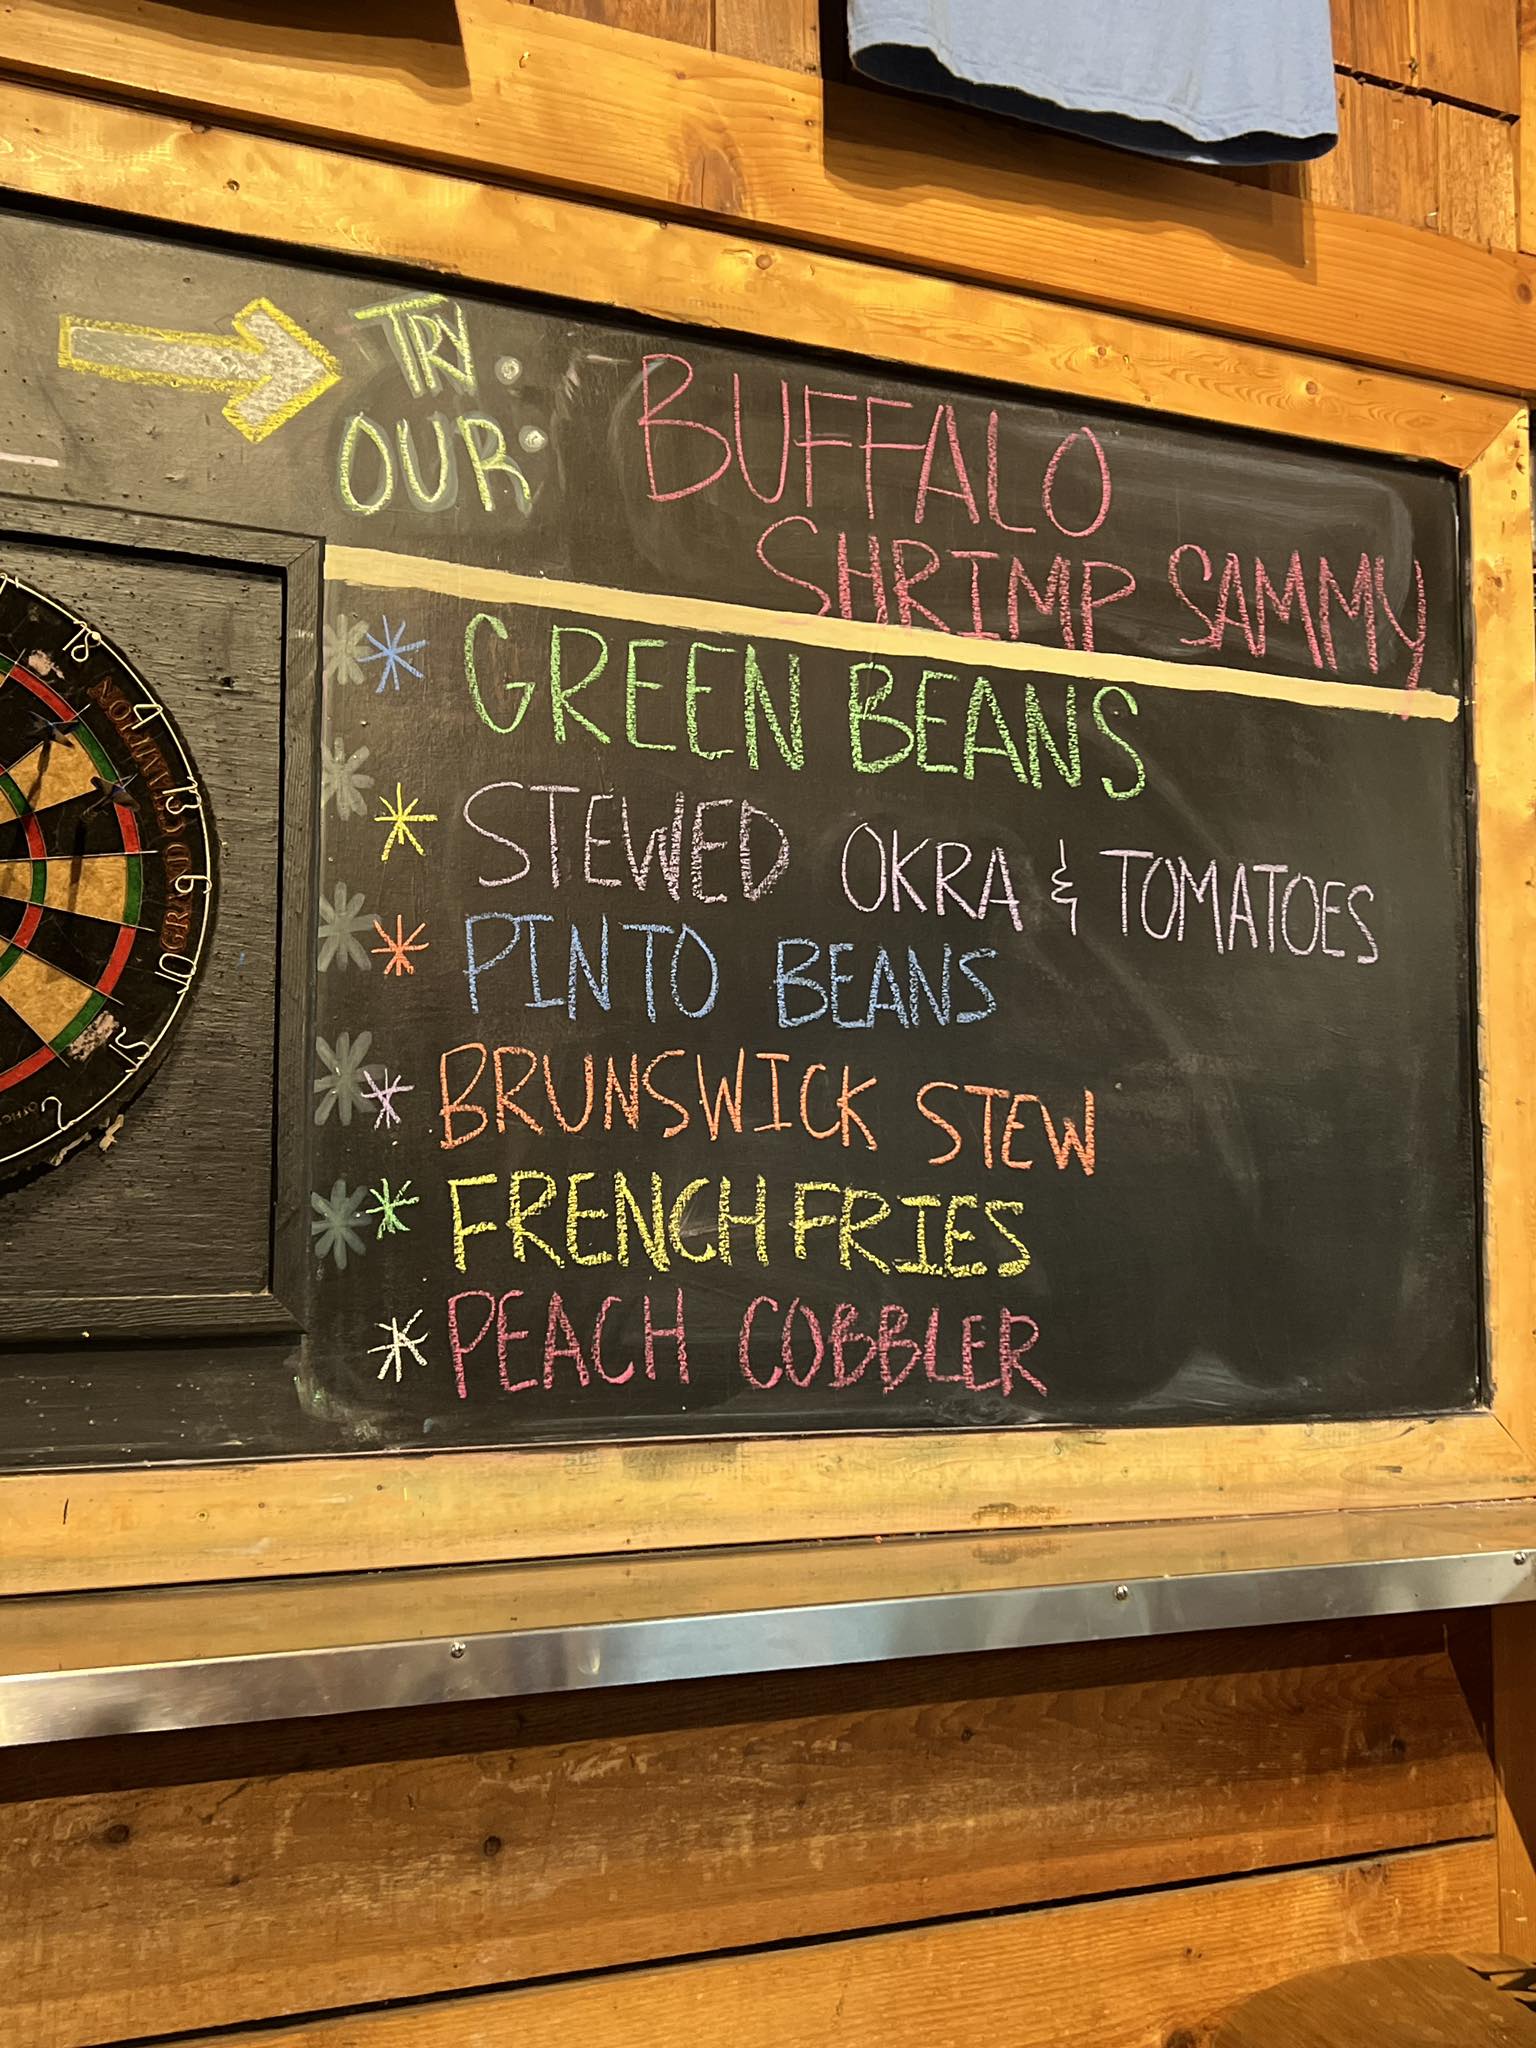 TRY
OUR:
BUFFALO
SHRIMP SAMMY
* GREEN BEANS
* STEWED OKRA & TOMATOES
* PINTO BEANS
* BRUNSWICK STEW
* FRENCH FRIES
* PEACH COBBLER
18
4
13
6
10
15
2
NODOR